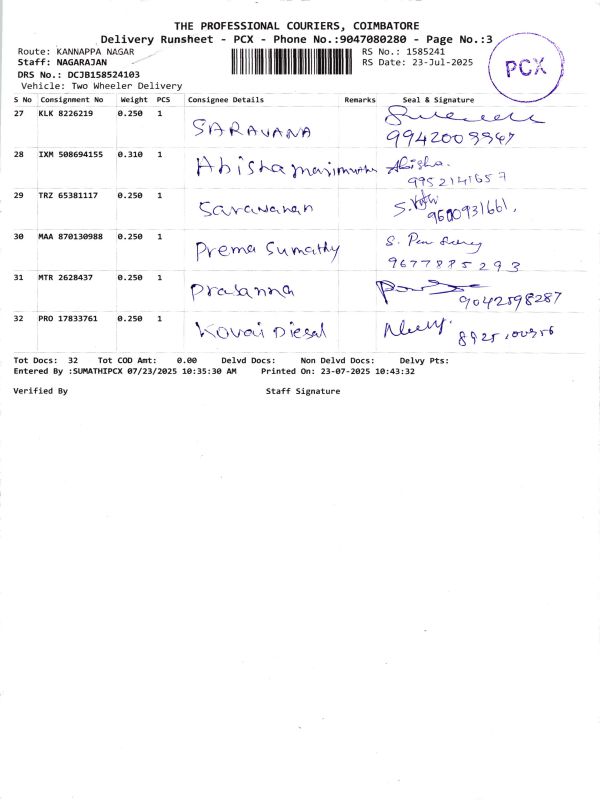 THE PROFESSIONAL COURIERS, COIMBATORE
Delivery Runsheet - PCX - Phone No.:9047080280 - Page No.:3
Route: KANNAPPA NAGAR RS No.: 1585241
Staff: NAGARAJAN RS Date: 23-Jul-2025
DRS No.: DCJB158524103
Vehicle: Two Wheeler Delivery
PCX
S No Consignment No Weight PCS Consignee Details Remarks Seal & Signature
27 KLK 8226219 0.250 1 SARAVANA
28 IXM 508694155 0.310 1 Abisha marimuthu Abisha.
9952141657
29 TRZ 65381117 0.250 1 Saravanan
9600931661.
30 MAA 870130988 0.250 1 Prema Sumathy
9677885293
31 MTR 2628437 0.250 1 Prasanna
9042598287
32 PRO 17833761 0.250 1 Kovai Diesal
Tot Docs: 32 Tot COD Amt: 0.00 Delvd Docs: Non Delvd Docs: Delvy Pts:
Entered By :SUMATHIPCX 07/23/2025 10:35:30 AM Printed On: 23-07-2025 10:43:32
Verified By Staff Signature